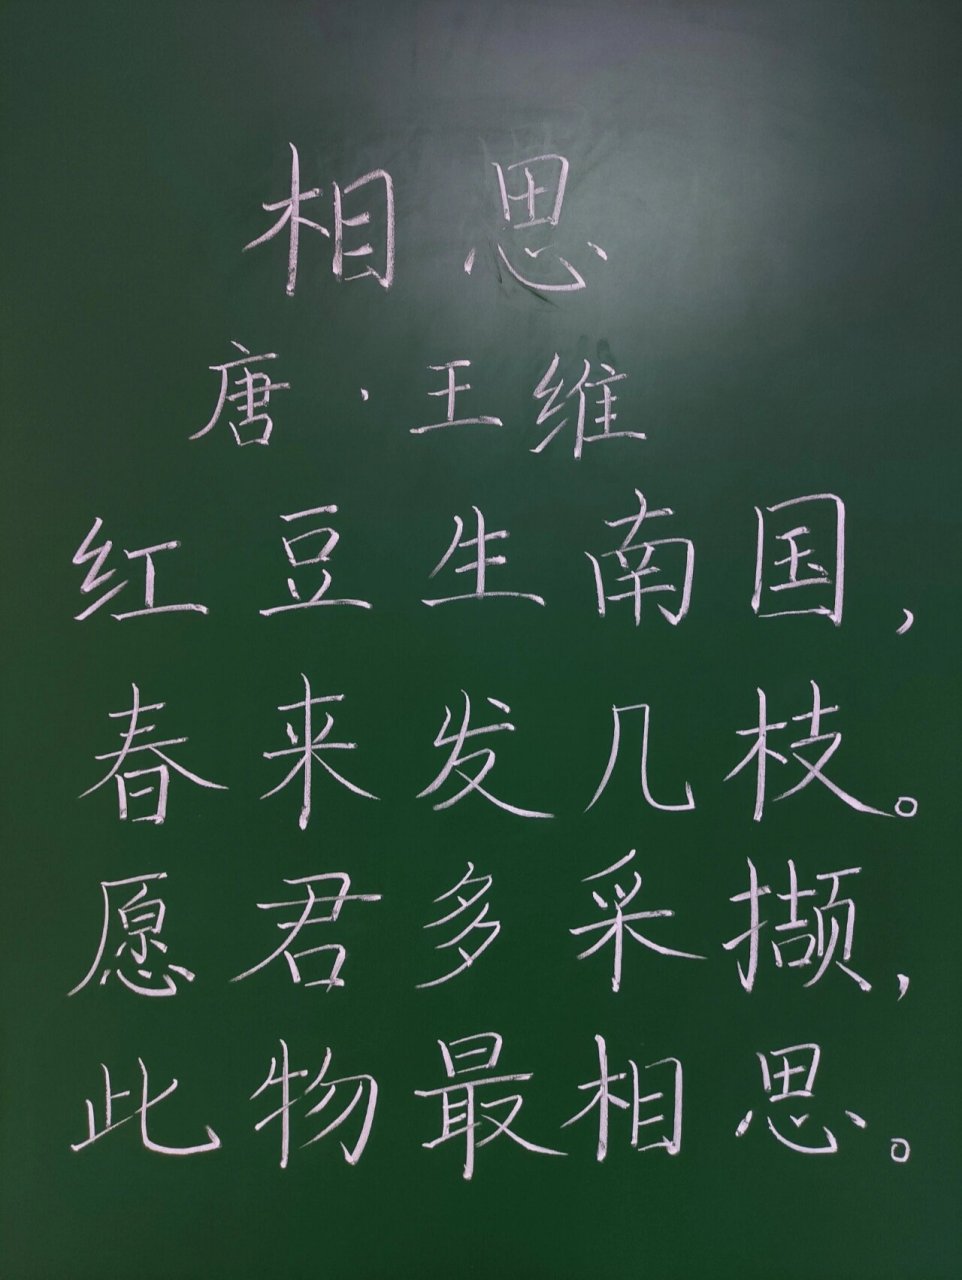 相思
唐·王维
红豆生南国，
春来发几枝。
愿君多采撷，
此物最相思。